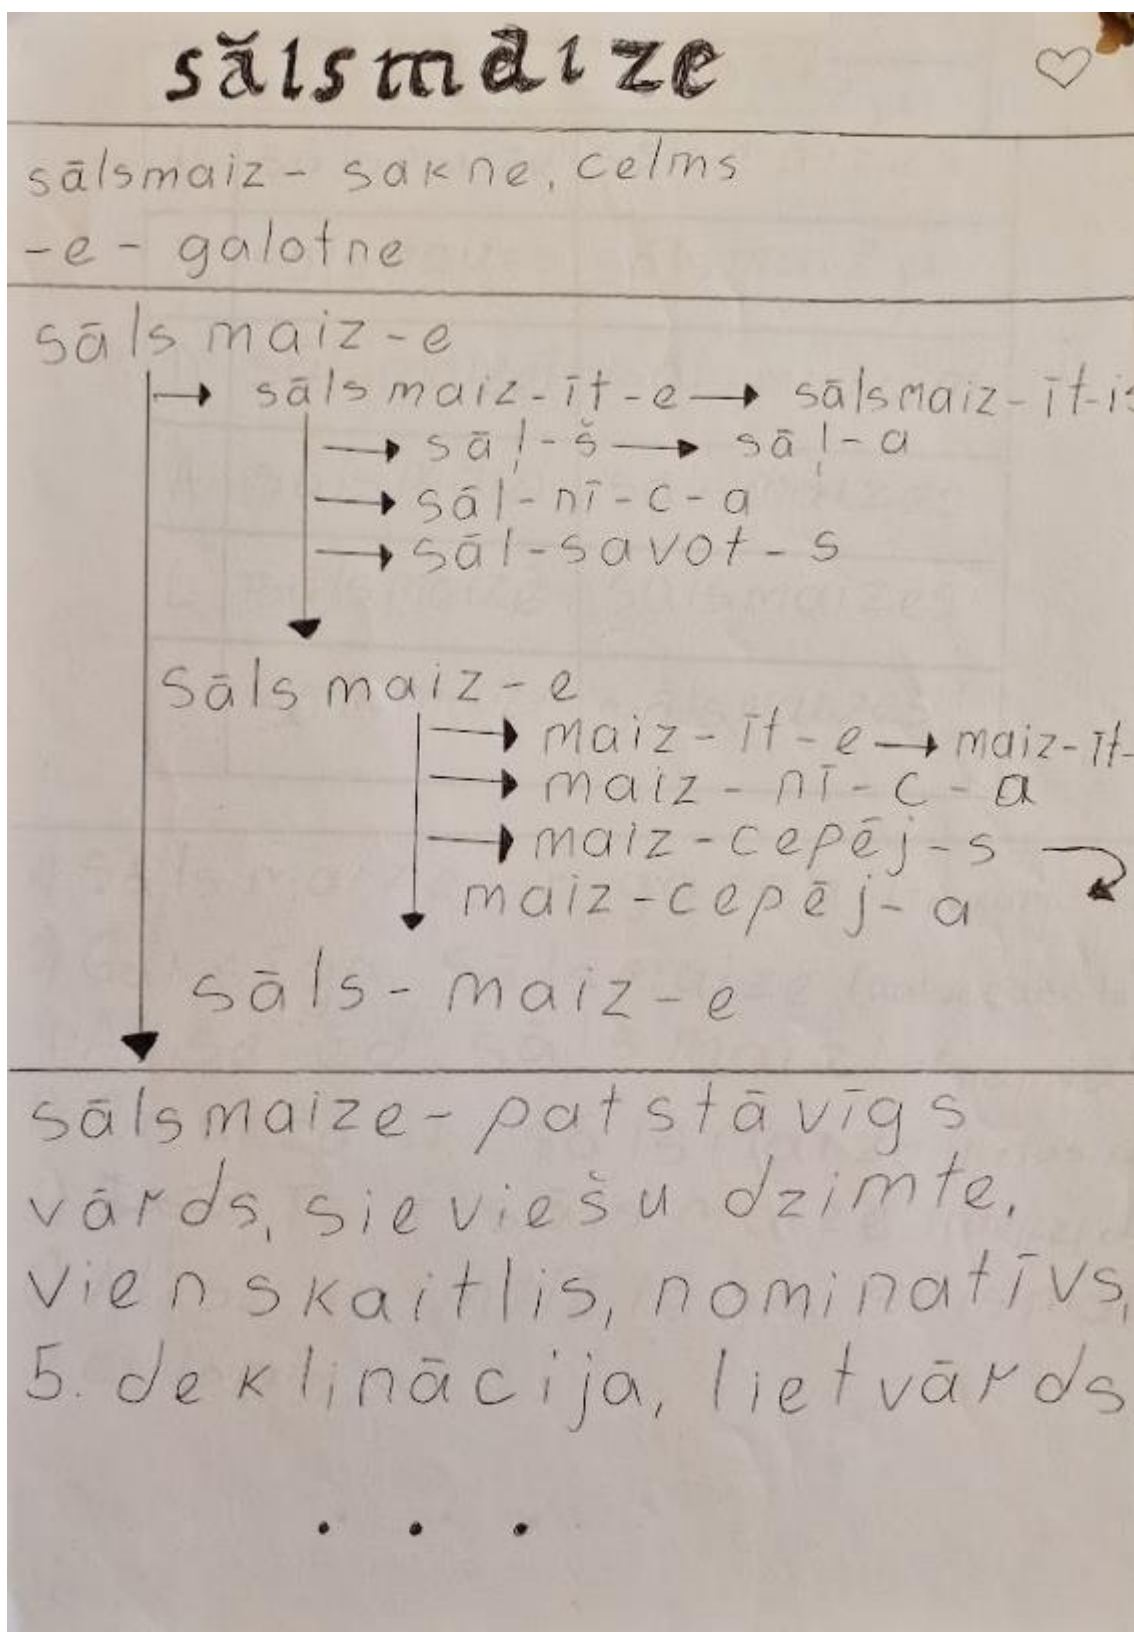 sālsmaize
sālsmaiz - sakne, celms
-e - galotne
sālsmaiz-e
→ sālsmaiz-īt-e → sālsmaiz-īt-is
→ sāļ-š → sāļ-a
→ sāl-nī-c-a
→ sāl-savot-s
sālsmaiz-e
→ maiz-īt-e → maiz-īt-
→ maiz-nī-c-a
→ maiz-cepēj-s
maiz-cepēj-a
sāls-maiz-e
sālsmaize - patstāvīgs
vārds, sieviešu dzimte,
vienskaitlis, nominatīvs,
5. deklinācija, lietvārds
. . .